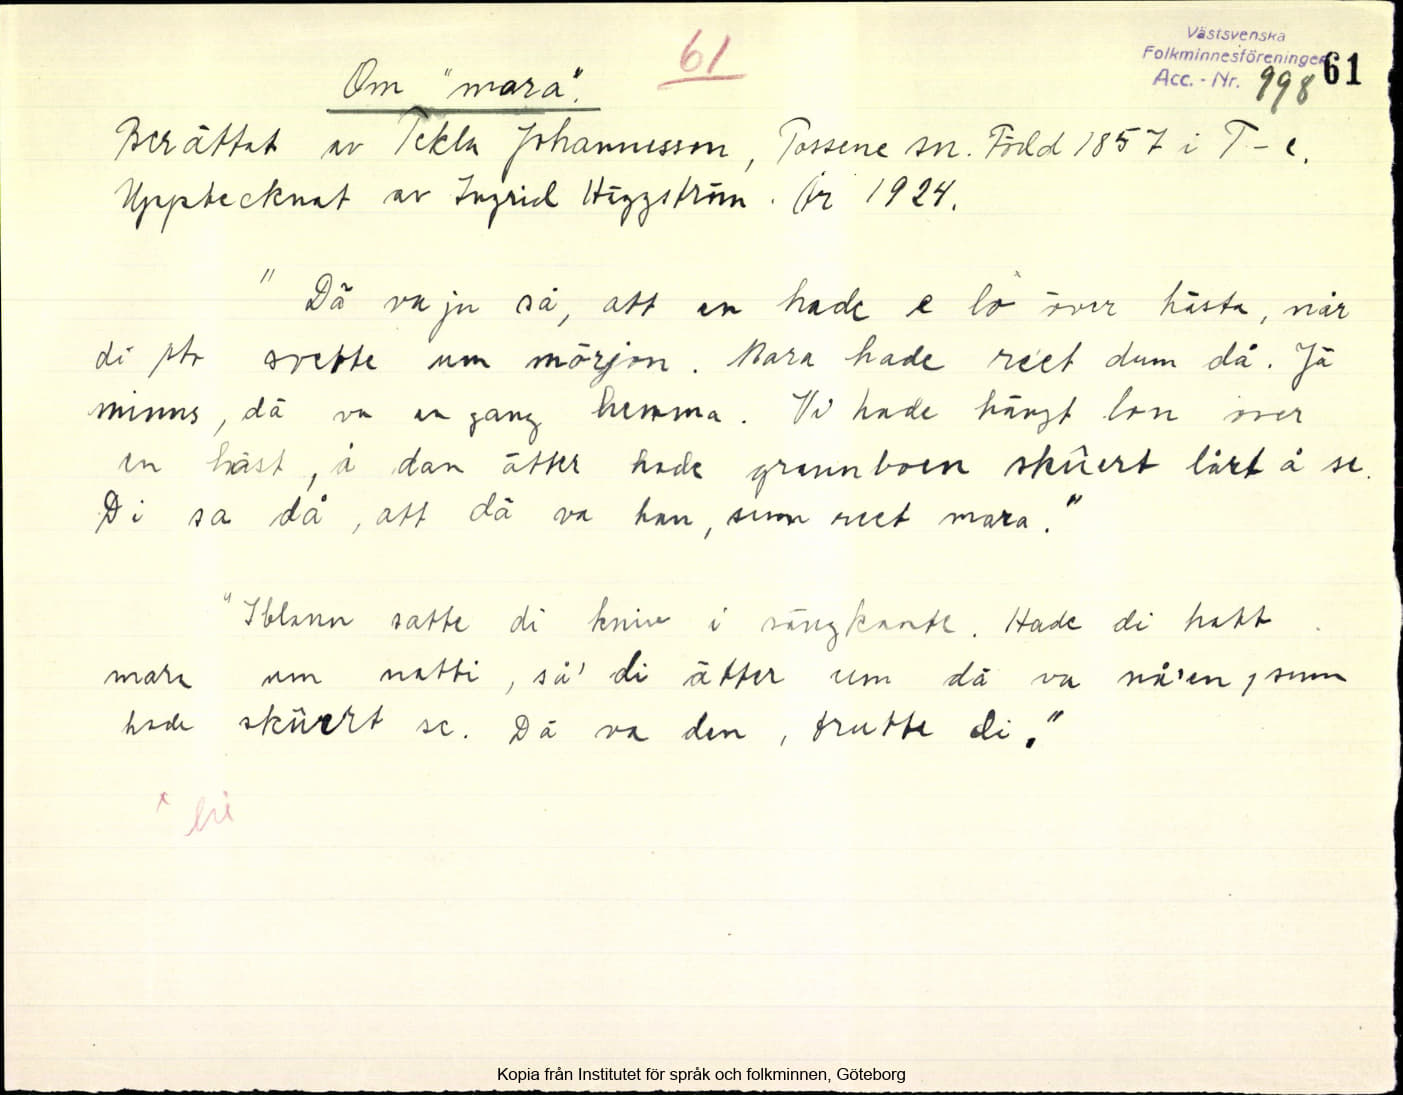 61
Västsvenska
Folkminnesföreningen
Acc. - Nr. 998
61
Om "mara".
Berättat av Tekla Johannesson, Tossene sn. Född 1857 i T-e.
Upptecknat av Ingrid Häggström. År 1924.
"Dä va ju så, att en hade e lo över hästa, når
di svette um mörjon. Mara hade reet dum då. Jä
minns, dä va en gang hemma. Vi hade hängt lon över
en häst, å dan ätter hade grannboen skûert lårt å se.
Di sa då, att dä va han, sum reet mara."
"Iblann satte di kniv i sängkante. Hade di hatt
mara um natti, så' di ätter um dä va nå'en, sum
hade skûert se. Dä va den, trutte di."
Kopia från Institutet för språk och folkminnen, Göteborg